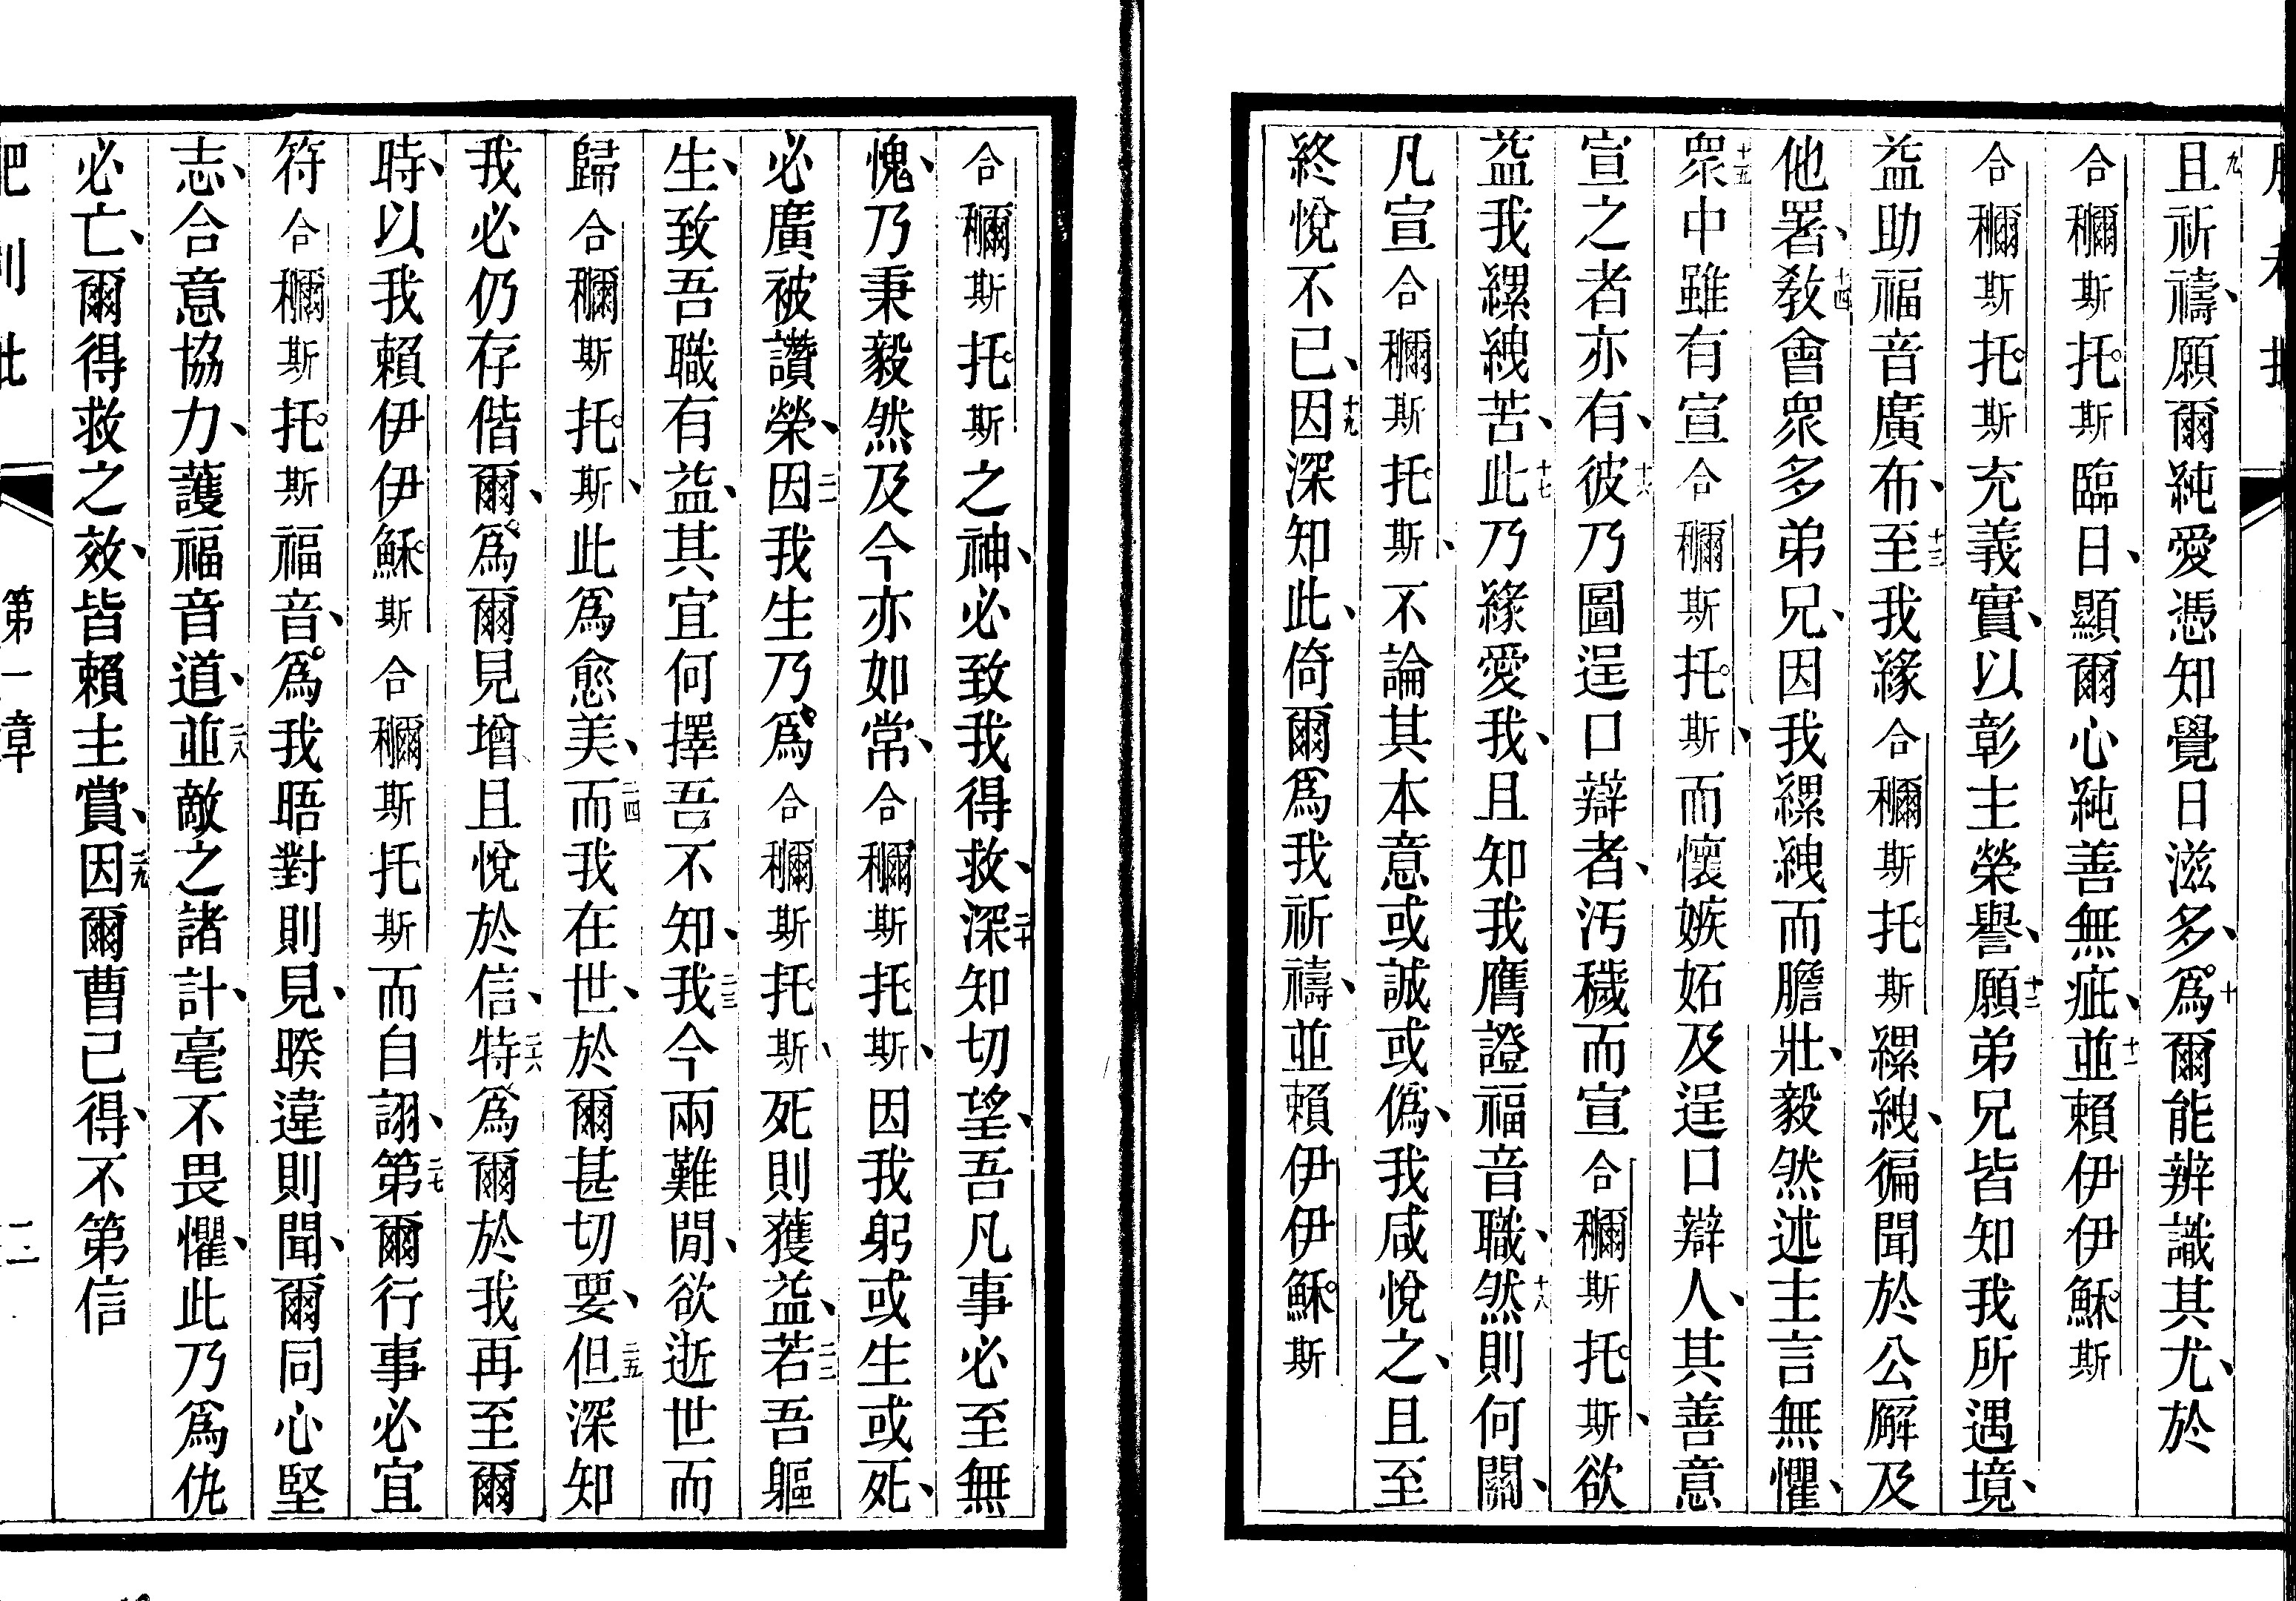 九且祈禱、願爾純愛憑知覺日滋多、十爲爾能辨識其尤、於
合穪斯托斯臨日、顯爾心純善無疵、十一並賴伊伊穌斯
合穪斯托斯充義實、以彰主榮譽、十二願弟兄皆知我所遇境、
益助福音廣布、十三至我緣合穪斯托斯縲絏、徧聞於公廨及
他署、十四敎會眾多弟兄、因我縲絏而膽壯、毅然述主言無懼、
十五眾中雖有宣合穪斯托斯、而懷嫉妬及逞口辯人、其善意
宣之者亦有、十六彼乃圖逞口辯者、汚穢而宣合穪斯托斯、欲
益我縲絏苦、十七此乃緣愛我、且知我膺證福音職、十八然則何關、
凡宣合穪斯托斯、不論其本意或誠或僞、我咸悅之、且至
終悅不已、十九因深知此、倚爾爲我祈禱、並賴伊伊穌斯
合穪斯托斯之神、必致我得救、二十深知切望、吾凡事必至無
愧、乃秉毅然及今亦如常、合穪斯托斯、因我躬或生或死、
必廣被讚榮、二一因我生乃爲合穪斯托斯、死則獲益、二二若吾軀
生、致吾職有益、其宜何擇吾不知、二三我今兩難閒、欲逝世而
歸合穪斯托斯、此爲愈美、二四而我在世、於爾甚切要、二五但深知
我必仍存偕爾、爲爾見增且悅於信、二六特爲爾於我再至爾
時、以我賴伊伊穌斯合穪斯托斯而自詡、二七第爾行事必宜
符合穪斯托斯福音、爲我晤對則見、暌違則聞、爾同心堅
志、合意協力、護福音道、二八並敵之諸計、毫不畏懼、此乃爲仇
必亡、爾得救之效、皆賴主賞、二九因爾曹已得、不第信
第一章
二